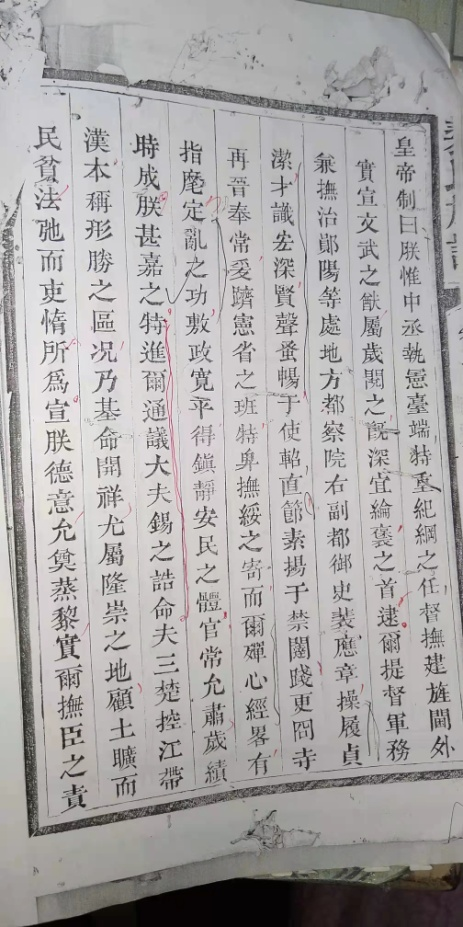 皇帝制曰朕惟中丞執憲臺端特重紀綱之任督撫建旌閫外
實宣文武之猷屬歲閱之旣深宜綸褒之首逮爾提督軍務
兼撫治鄖陽等處地方都察院右副都御史裴應章操履貞
潔才識宏深賢聲蚤暢于使軺直節素揚于禁闥踐更冏寺
再晉奉常爰躋憲省之班特畀撫綏之寄而爾殫心經畧有
指麾定亂之功敷政寬平得鎮靜安民之體官常允肅歲績
時成朕甚嘉之特進爾通議大夫錫之誥命夫三楚控江帶
漢本稱形勝之區况乃基命開祥尤屬隆崇之地顧土曠而
民貧法弛而吏惰所爲宣朕德意允奠蒸黎實爾撫臣之責